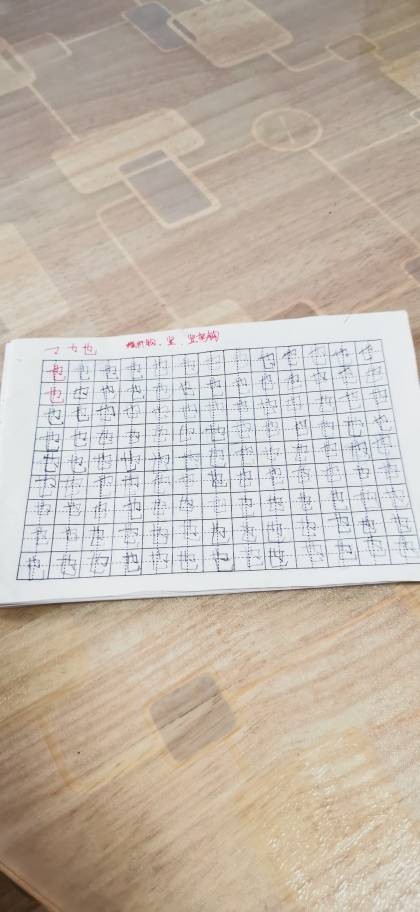 ㇆ 也 横折钩、竖、竖弯钩
也也也也也也也也也也也也也
也也也也也也也也也也也也也
也也也也也也也也也也也也也
也也也也也也也也也也也也也
也也也也也也也也也也也也也
也也也也也也也也也也也也也
也也也也也也也也也也也也也
也也也也也也也也也也也也也
也也也也也也也也也也也也也